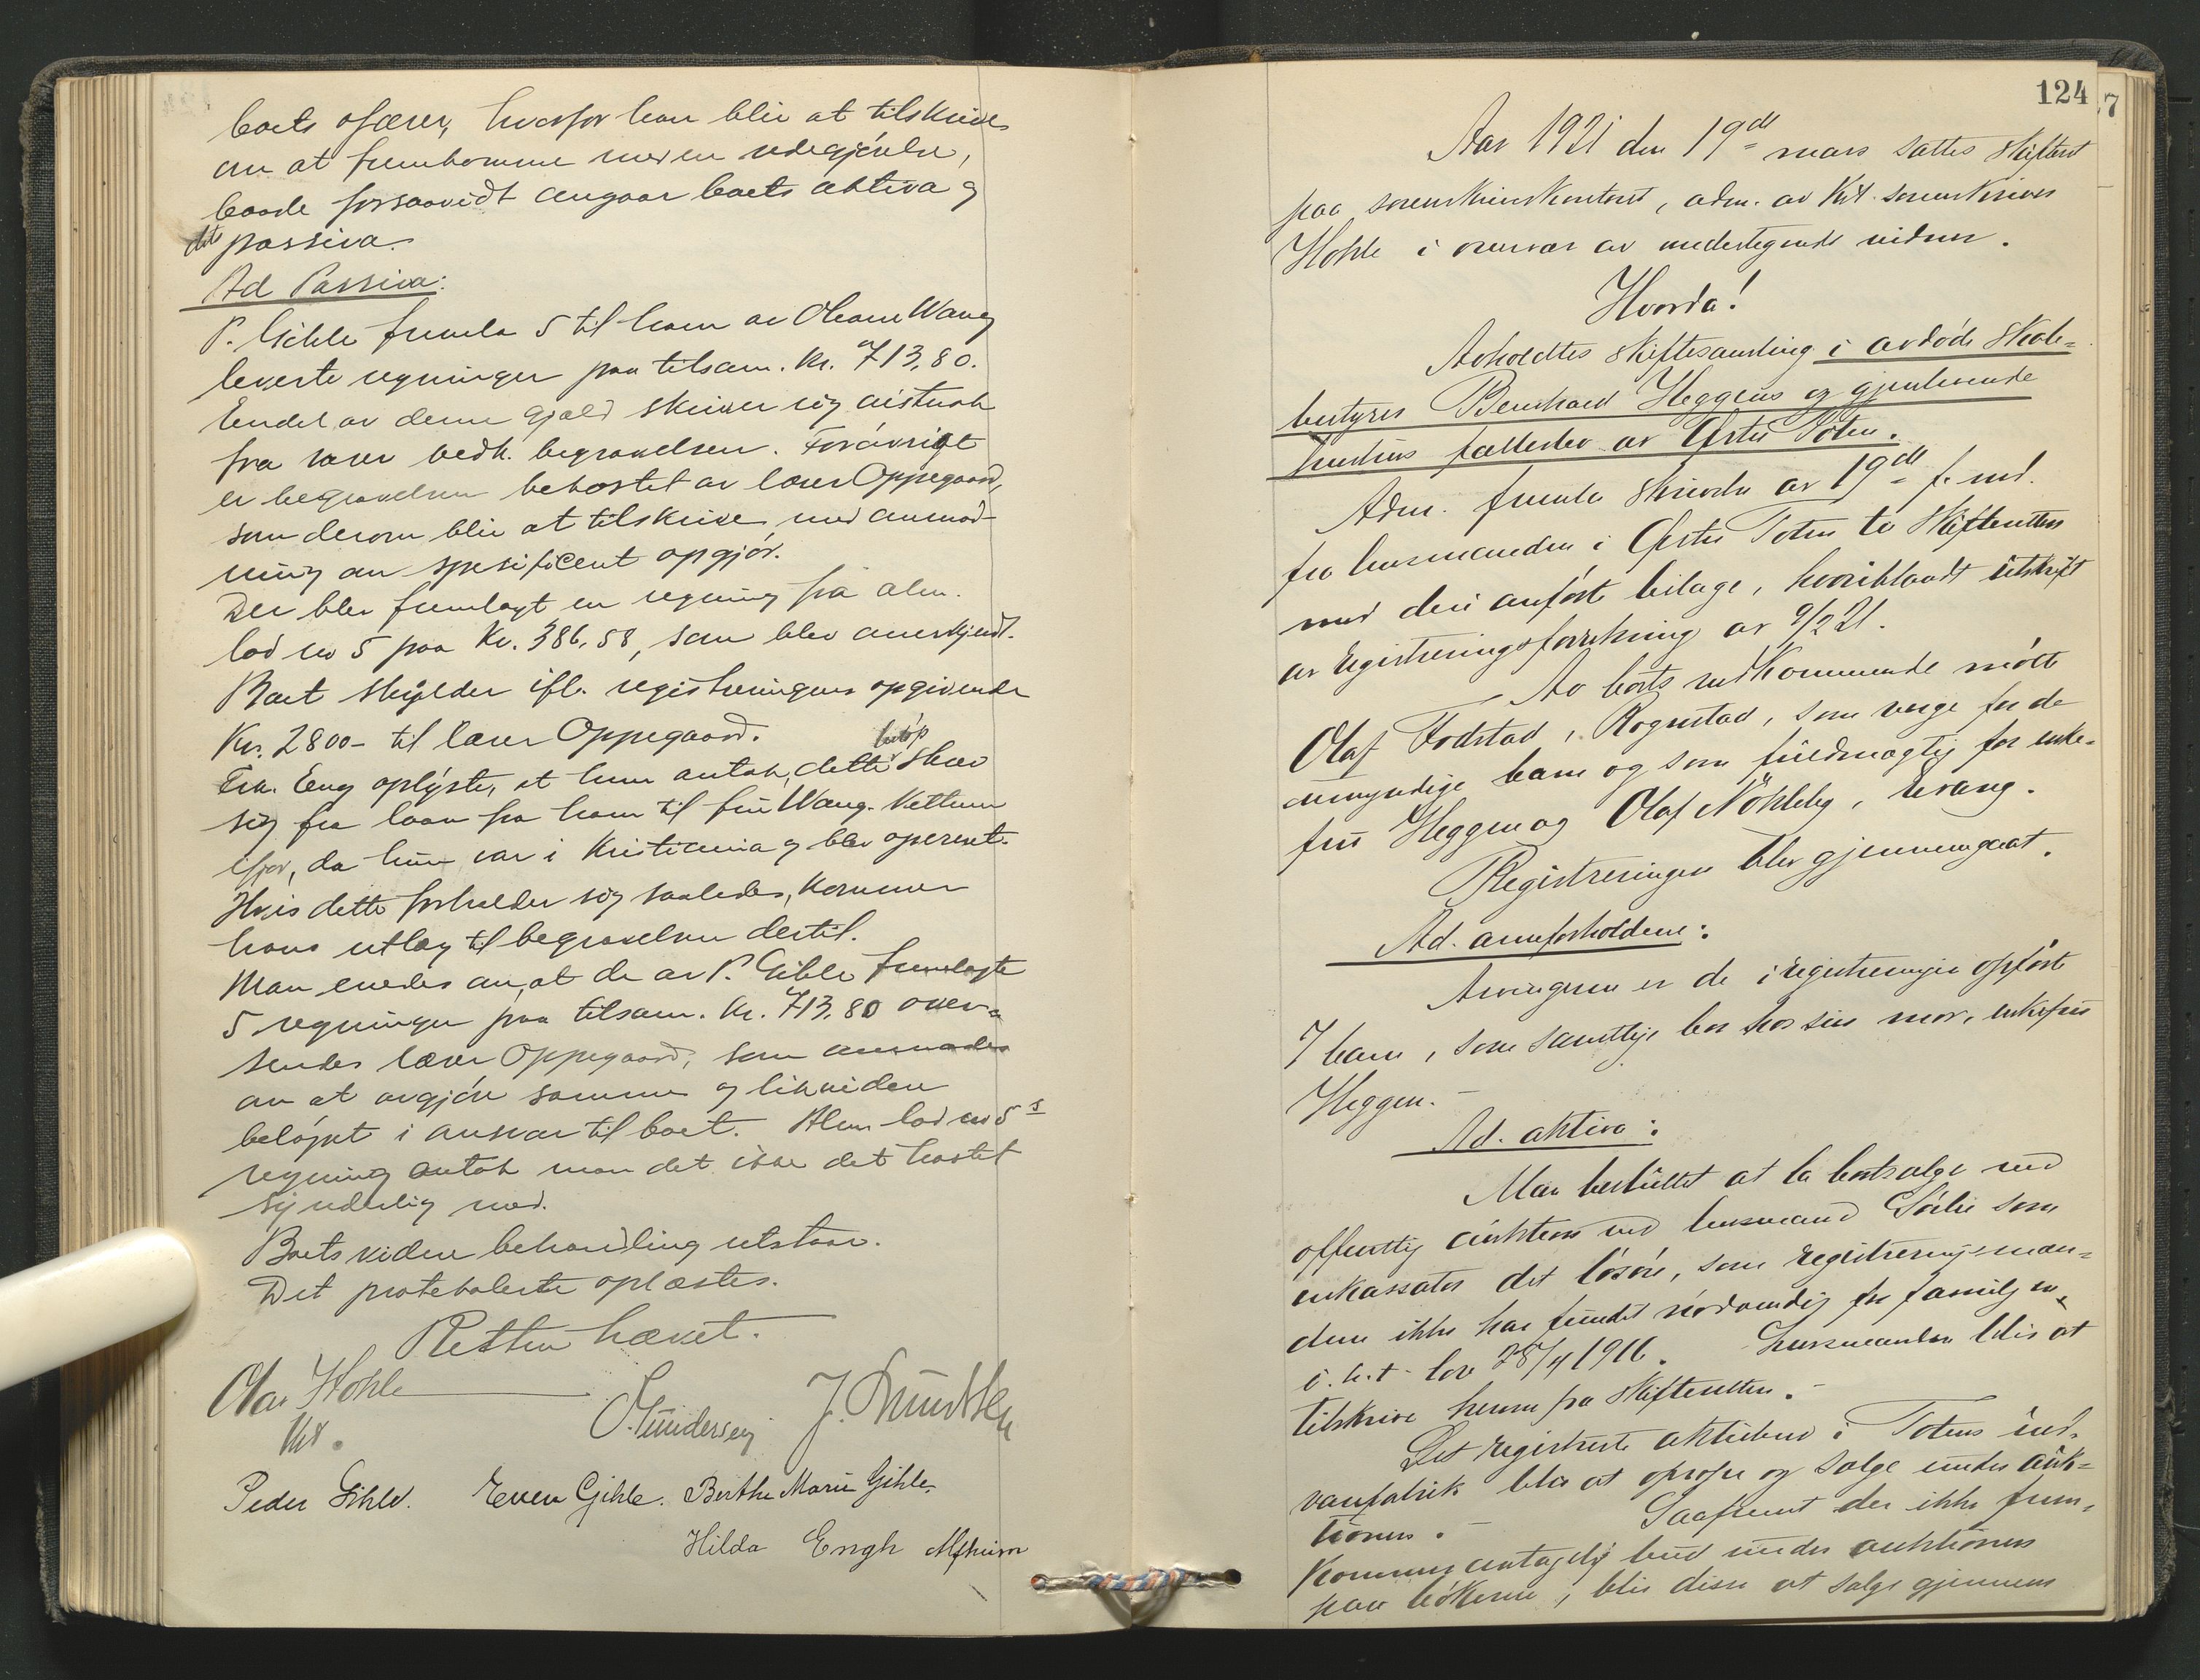 boets ofærer, hvorfor han blir at tilskrives
om at fremkomme med en redegjørelse,
baade forsaavidt angaar boets aktiva og
dets passiva.
Ad Passiva:
P. Gihle fremla 5 til ham av Olram Wang
leverte regninger paa tilsam. kr. 713,80.
Endel av denne gjæld skriver sig
fra varer vedk. begravelsen. Forøvrigt
er begravelsen bekostet av lærer Oppegaard,
som derom blir at tilskrive med anmod-
ning om spesificert opgjør.
Der blev fremlagt en regning fra alm.
lod nr 5 paa Kr. 386,58, som blev anerkjendt.
Boet skylder ifl. registreringens opgivende
Kr. 2800- til lærer Oppegaard.
Frk. Eng oplyste, at hun antok, dette beløp skrev
sig fra laan fra ham til fru Wang. Kettum
ifjor, da hun var i Kristiania og blev operert.
Hvis dette forholder sig saaledes, kommer
hans utlæg til begravelsen dertil.
Man enedes om, at de av P. Gihle fremlagte
5 regninger paa tilsam. kr. 713,80 over-
sendes lærer Oppegaard, som anmodes
om at avgjøre samme og likvidere
beløpet i ansvar til boet. Alm. lod nr 5s
regning antok man det ikke det hastet
synderlig med.
Boets videre behandling utstaar.
Det protokolerte oplæstes.
Retten hævet.
Olav Hohle
Kst.
O. Gundersen J. Knudsen
Peder Gihle. Even Gihle. Berthe Marie Gihle.
Hilda Engh
124
7
Aar 1921 den 19de mars sattes skifteret
paa sorenskriverkontoret, adm. av Kst. sorenskriver
Hohle i overvær av undertegnede vidner.
Hvorda!
Avholdtes skiftesamling i avdøde skole-
bestyrer Bernhard Heggens og gjenlevende
hustrus fællesbo av Østre Toten.
Adm. fremla skrivelse av 19de f. md.
fra lensmanden i Østre Toten til Skifteretten
med deri anførte bilage, hvoriblandt utskrift
av registreringsforretning av 9/2 21.
Av boets vedkommende møtte
Olaf Fodstad, Rognstad, som verge for de
umyndige barn og som fuldmægtig for enke-
fru Heggen og Olaf Nøkleby, Kvang.
Registreringen blev gjennemgaat.
Ad. arveforholdene:
Arvingerne er de i registreringen opførte
7 barn, som samtlige bor hos sin mor, enkefru
Heggen.-
Ad. aktiva:
Man besluttet at la bortsælge ved
offentlig auktion ved lensmand Sørlie som
inkassator det løsøre, som registrerings-mæn-
dene ikke har fundet nødvendig for familjen,
i h.t. lov 28/4 1916. Lensmanden blir at
tilskrive herom fra skifteretten.-
Det registrerte aktiebrev i Totens uld-
varefabrik blir at oprope og sælge under auk-
tionen.- Saafremt der ikke frem-
kommer antagelig bud under auktionen
paa bøkerne, blir disse at sælge gjennem